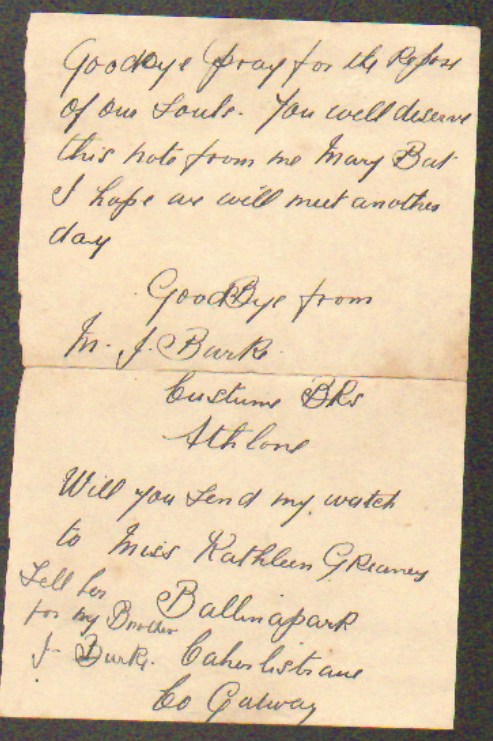 Goodbye pray for the Repose
of our Souls. You well deserve
this note from me Mary Bat
I hope we will meet another
day
GoodBye from
M. J. Burke
Custume BKs
Athlone
Will you send my watch
to Miss Kathleen Greaney
Ballinapark
Caherlistrane
Co Galway
Tell her
for my Brother
J Burke.